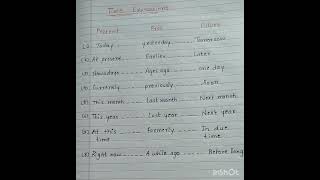 Time Expressions
Present Past Future
(1) Today yesterday Tomorrow
(2) At present Earlier Later
(3) Nowadays Ages ago one day
(4) Currently previously Soon
(5) This month Last month Next month
(6) This year Last year Next year
(7) At this time Formerly In due time
(8) Right now A while ago Before long
InShOt